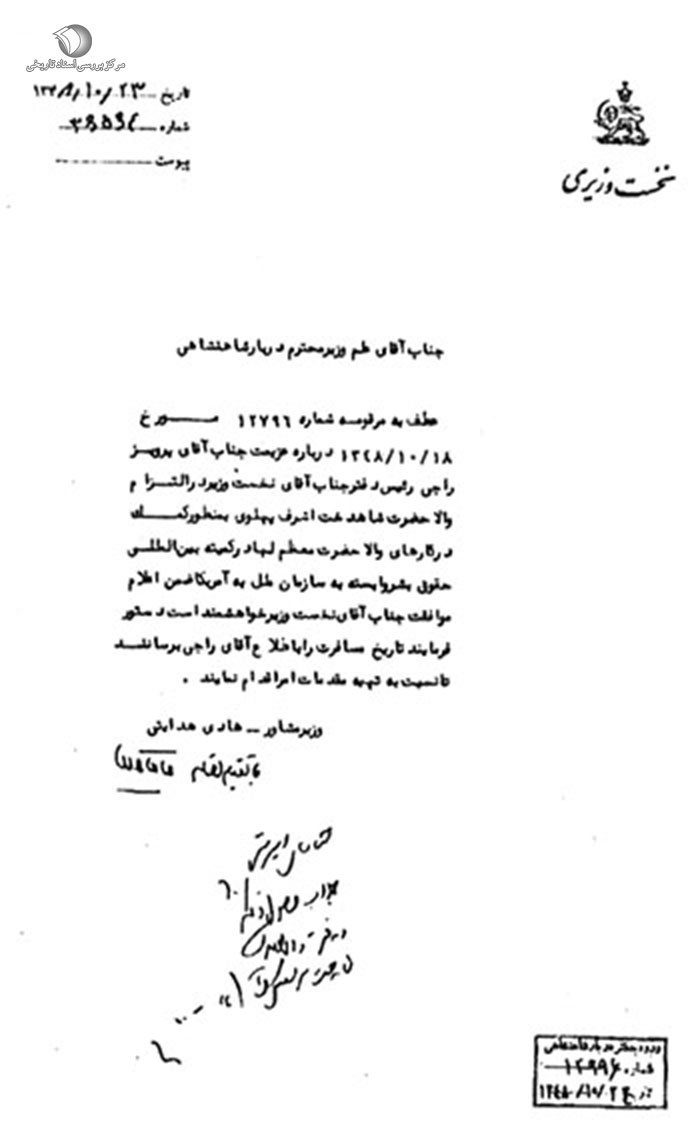 مرکز بررسی اسناد تاریخی
تاریخ ۱۳۴۸/۱۰/۲۳
شماره
پیوست
نخست وزیری
جناب آقای علم وزیر محترم دربار شاهنشاهی
عطف به مرقومه شماره ۱۲۷۹۶ مورخ
۱۳۴۸/۱۰/۱۸ درباره عزیمت جناب آقای پرویز
راجی رئیس دفتر جناب آقای نخست وزیر در التزام
والا حضرت شاهدخت اشرف پهلوی بمنظور کمک
در کارهای والا حضرت معظم لها در کمیته بین المللی
حقوق بشر وابسته به سازمان ملل به آمریکا ضمن اعلام
موافقت جناب آقای نخست وزیر خواهشمند است دستور
فرمایند تاریخ مسافرت را باطلاع آقای راجی برسانند
تا نسبت به تهیه مقدمات امر اقدام نمایند .
وزیر مشاور ـ هادی هدایتی
با تقدیم
جواب
ورود بدفتر دربار شاهنشاهی
شماره
تاریخ ۱۳۴۸/۱۰/۲۴